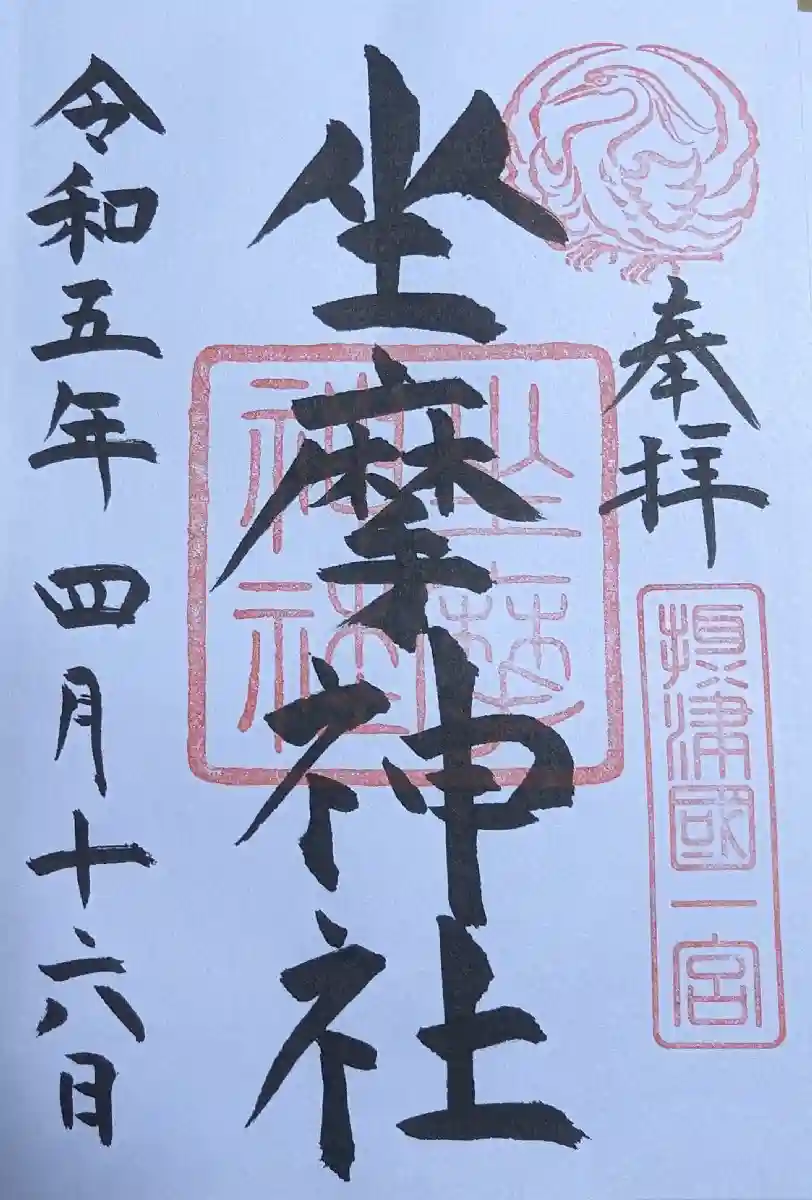 奉拝
摂津國一宮
坐摩神社
坐摩神社
令和五年四月十六日